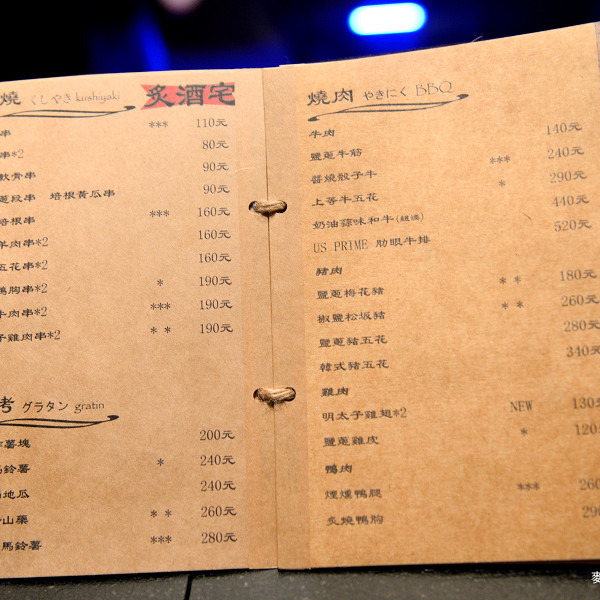 燒 くしやき kushiyaki 炙酒宅
串 *** 110元
串*2 80元
軟骨串 90元
蔥段串 培根黃瓜串 90元
培根串 *** 160元
羊肉串*2 160元
五花串*2 160元
鴨胸串*2 * 190元
牛肉串*2 *** 190元
子雞肉串*2 * * 190元
考 グラタン gratin
薯塊 200元
馬鈴薯 * 240元
地瓜 240元
山藥 * * 260元
馬鈴薯 *** 280元
燒肉 やきにく BBQ
牛肉
鹽蔥牛筋 140元
醬燒骰子牛 *** 240元
上等牛五花 * 290元
奶油蒜味和牛 440元
US PRIME 肋眼牛排 520元
豬肉
鹽蔥梅花豬 * * 180元
椒鹽松坂豬 * * 260元
鹽蔥豬五花 280元
韓式豬五花 340元
雞肉
明太子雞翅*2 NEW 130元
鹽蔥雞皮 * 120
鴨肉
煙燻鴨腿 *** 260
炙燒鴨胸 290
麥